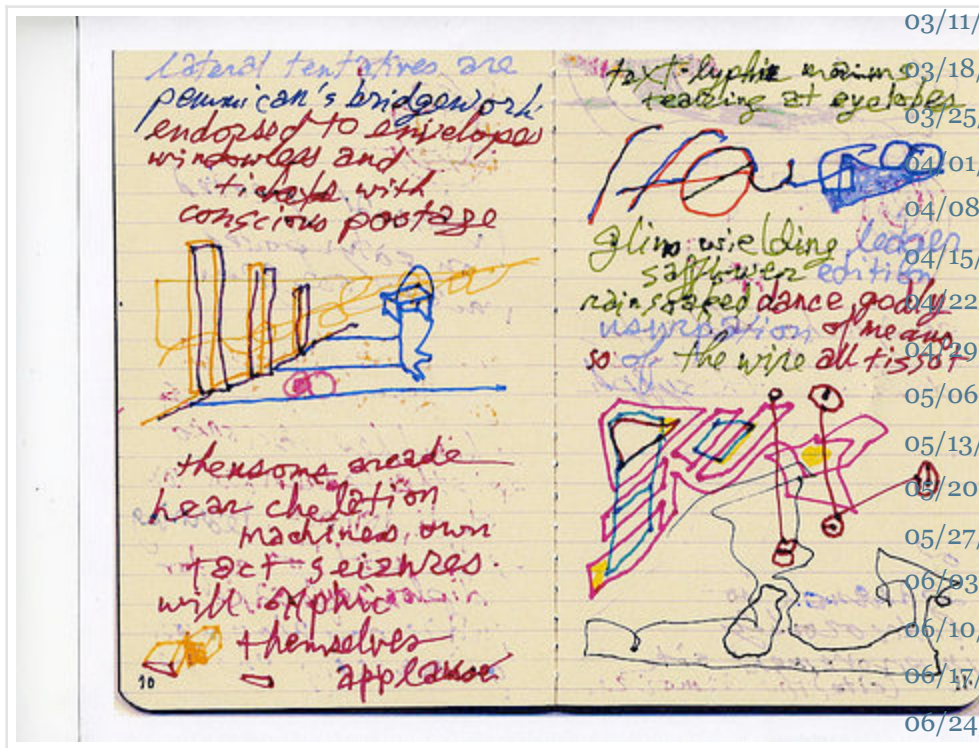 lateral tentatives are
pemmican's bridgework
endorsed to envelopes
windowless and
tickets with
conscious postage
thensome arcade
hear chelation
machines own
tact seizures.
will orphic
themselves
applause
10
text-lyphic
tearing at eyelobes
glim wielding ledger
safflower edition
dance godly
usurpation of means
so of the wire all tissot
03/11/
03/18/
03/25/
04/01/
04/08
04/15/
04/22
04/29
05/06
05/13/
05/20
05/27/
06/03
06/10/
06/17/
06/24